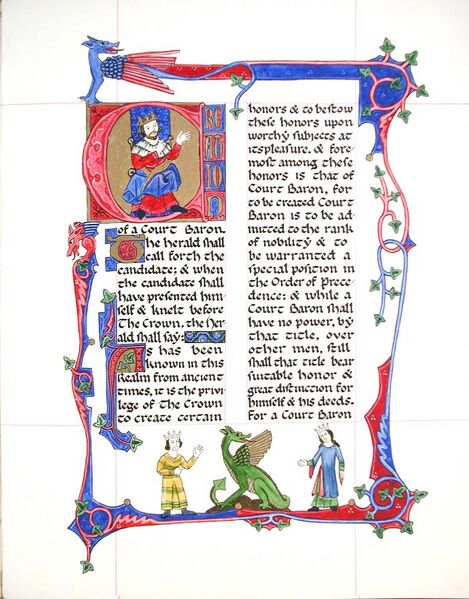 CREATION
of a Court Baron.
The herald shall
call forth the
candidate; & when
the candidate shall
have presented him-
self & knelt before
The Crown, the her-
ald shall say:
As has been
known in this
Realm from ancient
times, it is the privi-
lege of the Crown
to create certain
honors & to bestow
these honors upon
worthy subjects at
its pleasure, & fore
most among these
honors is that of
Court Baron, for
to be created Court
Baron is to be ad-
mitted to the rank
of nobility & to
be warranted a
special position in
the Order of Prece-
dence; & while a
Court Baron shall
have no power, by
that title, over
other men, still
shall that title bear
suitable honor &
great distinction for
himself & his deeds.
For a Court Baron